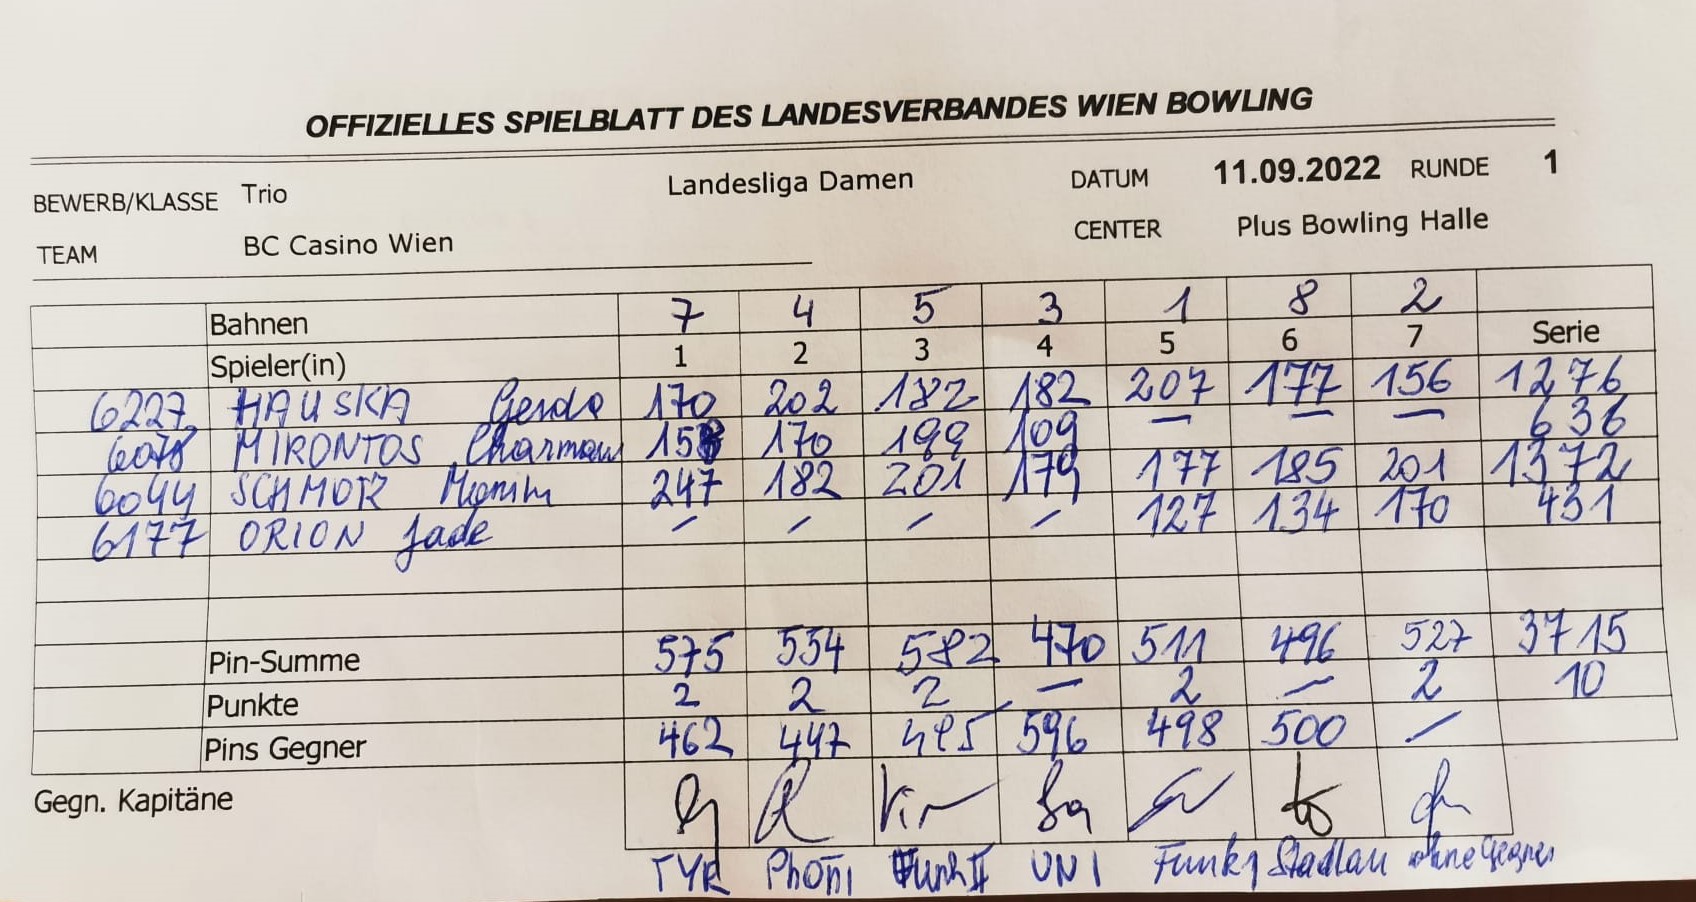 OFFIZIELLES SPIELBLATT DES LANDESVERBANDES WIEN BOWLING
BEWERB/KLASSE Trio Landesliga Damen DATUM 11.09.2022 RUNDE 1
TEAM BC Casino Wien CENTER Plus Bowling Halle
Bahnen 7 4 5 3 1 8 2
Spieler(in) 1 2 3 4 5 6 7 Serie
6227 HAUSKA 170 202 182 182 207 177 156 1276
6078 MIRONTOS 158 170 199 109 — — — 636
6044 247 182 201 179 177 185 201 1372
6177 ORION Jade – – – – 127 134 170 431
Pin-Summe 575 554 582 470 511 496 527 3715
Punkte 2 2 2 — 2 — 2 10
Pins Gegner 462 447 495 596 498 500 –
Gegn. Kapitäne
TYR Funk II UNI Funk 1 Stadlau ohne Gegner